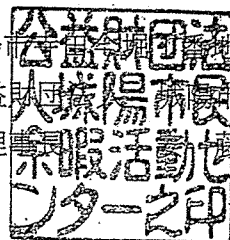 公益財団法
人城陽市民
余暇活動セ
ンター之印